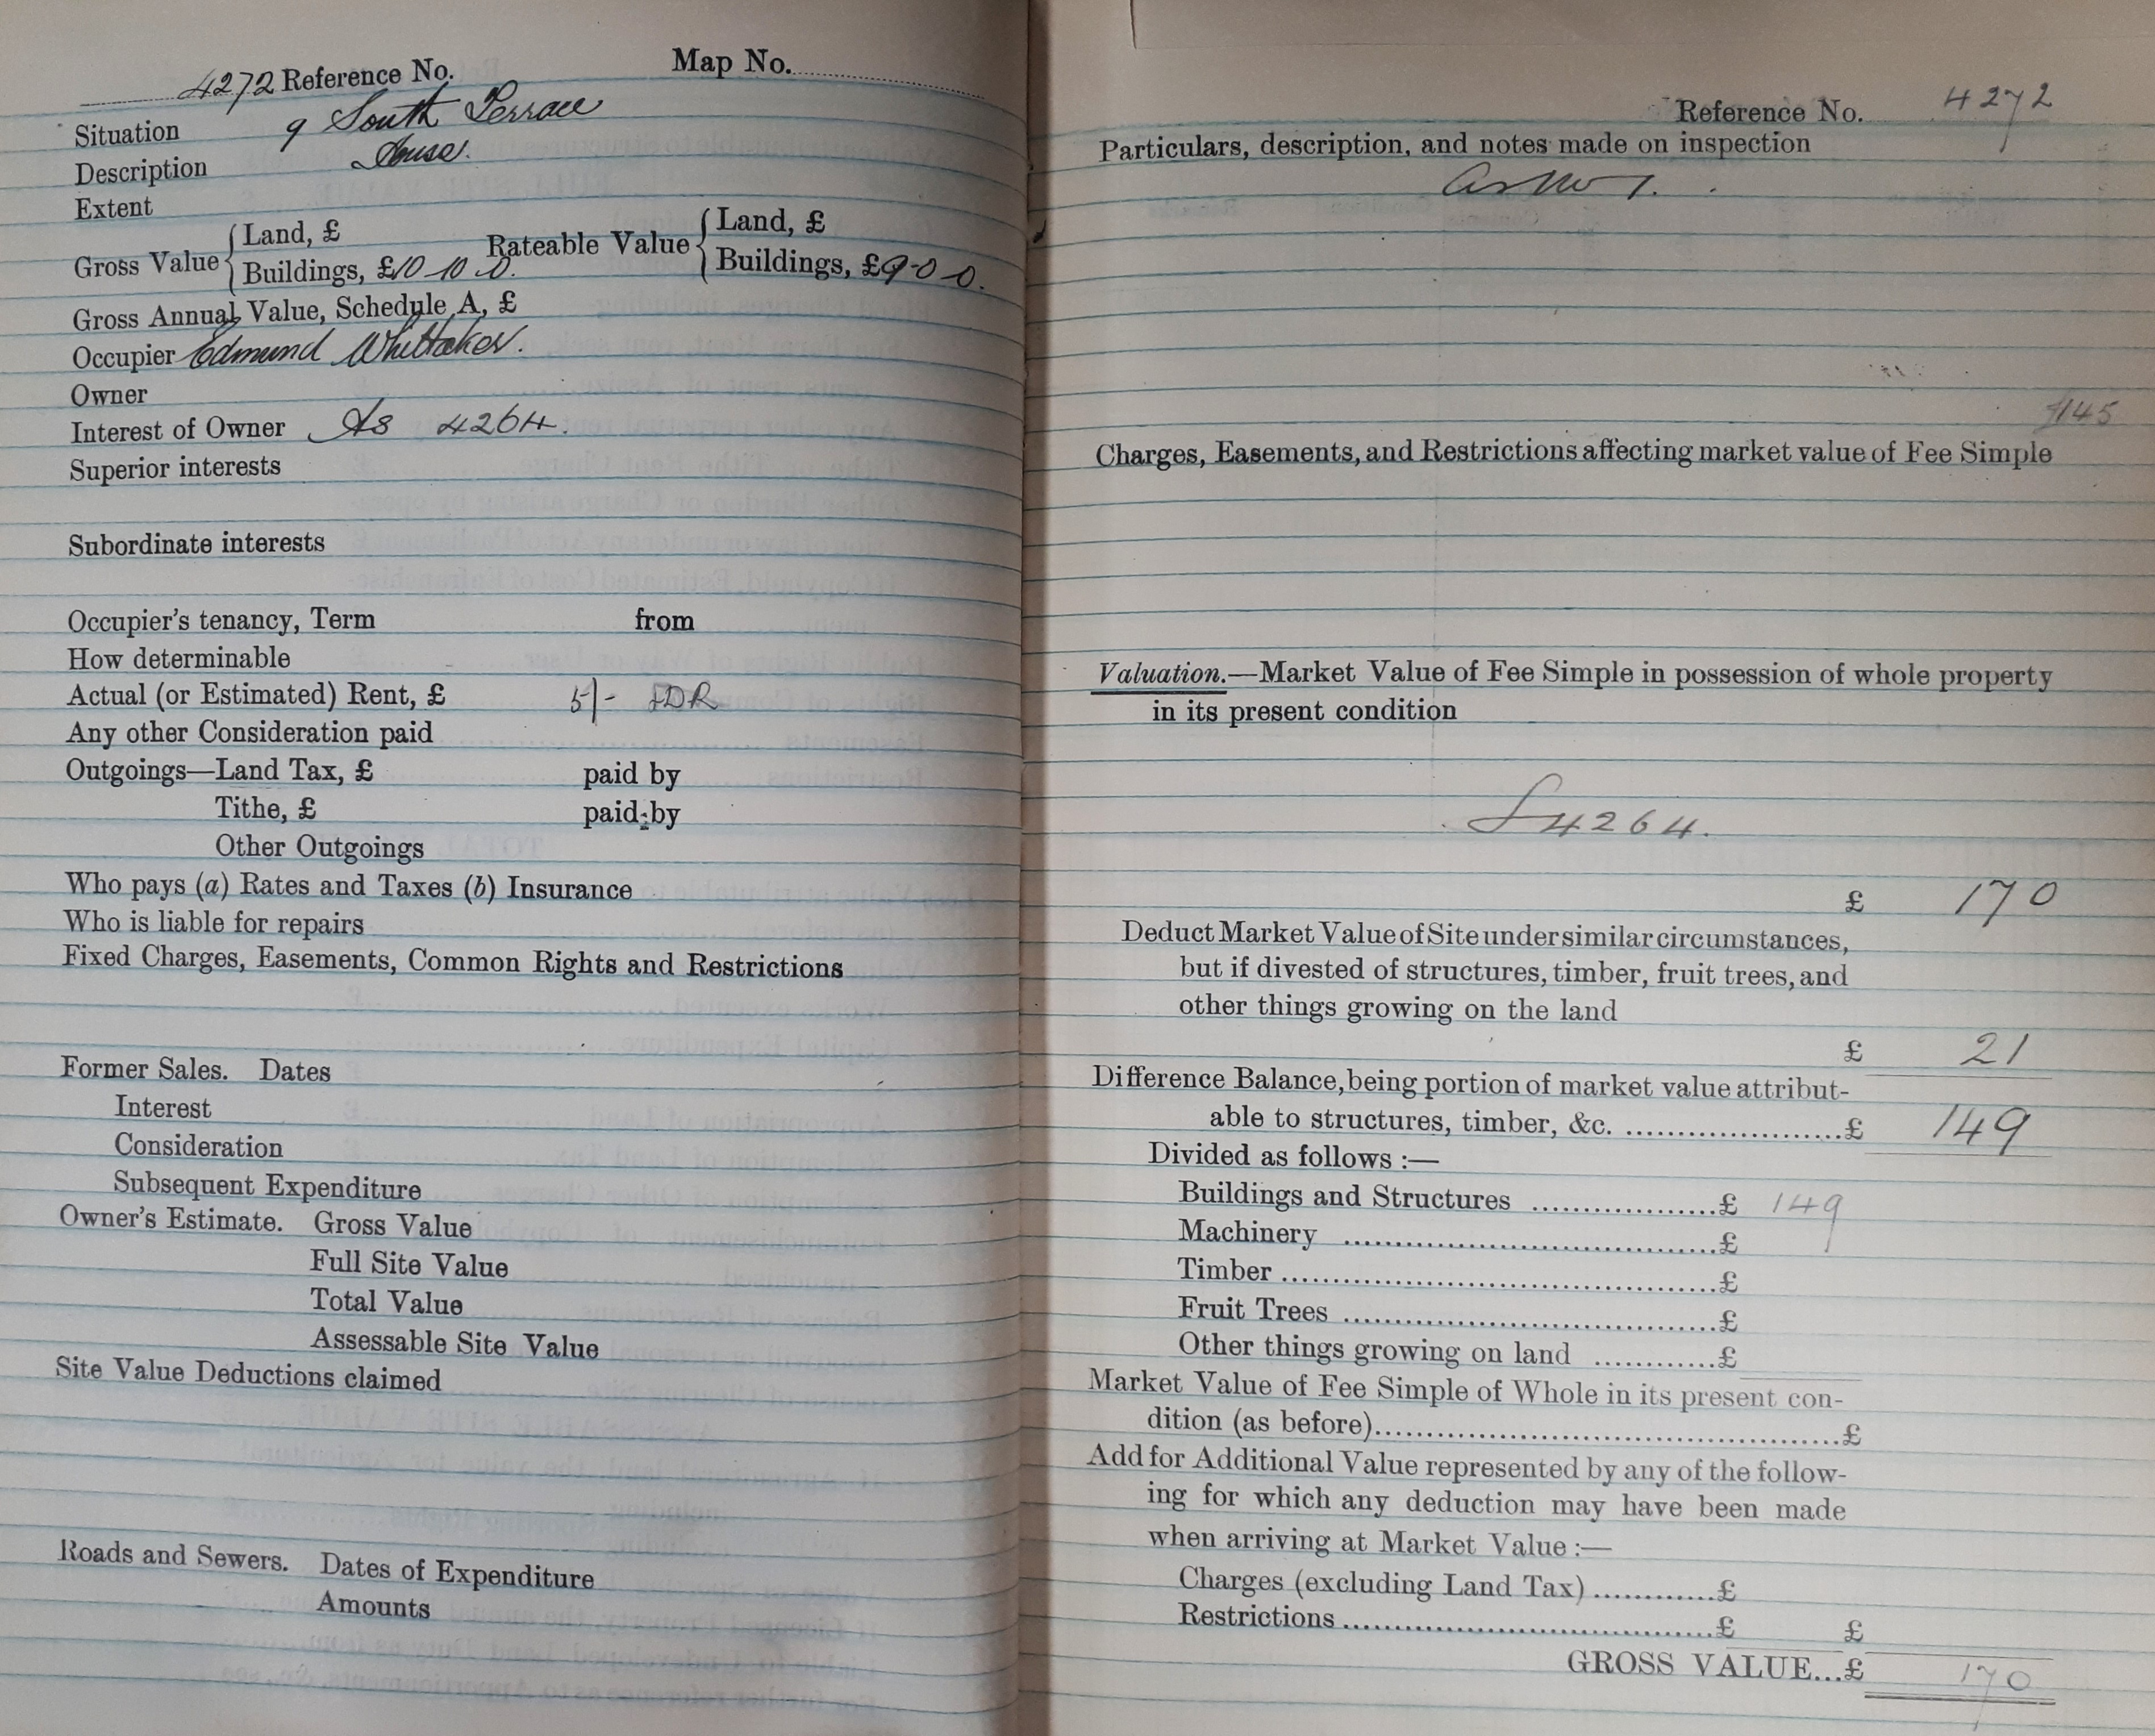 4272 Reference No. Map No.
Situation 9 South Terrace
Description House.
Extent
Gross Value { Land, £
Buildings, £10-10-0. Rateable Value { Land, £
Buildings, £9-0-0.
Gross Annual Value, Schedule A, £
Occupier Edmund Whittaker.
Owner
Interest of Owner As 4264.
Superior interests
Subordinate interests
Occupier's tenancy, Term from
How determinable
Actual (or Estimated) Rent, £ 5/- LDR
Any other Consideration paid
Outgoings—Land Tax, £ paid by
Tithe, £ paid by
Other Outgoings
Who pays (a) Rates and Taxes (b) Insurance
Who is liable for repairs
Fixed Charges, Easements, Common Rights and Restrictions
Former Sales. Dates
Interest
Consideration
Subsequent Expenditure
Owner's Estimate. Gross Value
Full Site Value
Total Value
Assessable Site Value
Site Value Deductions claimed
Roads and Sewers. Dates of Expenditure
Amounts
Reference No. 4272
Particulars, description, and notes made on inspection
as No 1.
£145
Charges, Easements, and Restrictions affecting market value of Fee Simple
Valuation.—Market Value of Fee Simple in possession of whole property
in its present condition
4264.
£ 170
Deduct Market Value of Site under similar circumstances,
but if divested of structures, timber, fruit trees, and
other things growing on the land
£ 21
Difference Balance, being portion of market value attribut-
able to structures, timber, &c. ......................£ 149
Divided as follows :—
Buildings and Structures ...................£ 149
Machinery ......................................£
Timber .............................................£
Fruit Trees .......................................£
Other things growing on land ............£
Market Value of Fee Simple of Whole in its present con-
dition (as before)................................................£
Add for Additional Value represented by any of the follow-
ing for which any deduction may have been made
when arriving at Market Value :—
Charges (excluding Land Tax)..............£
Restrictions......................................£ £
GROSS VALUE...£ 170